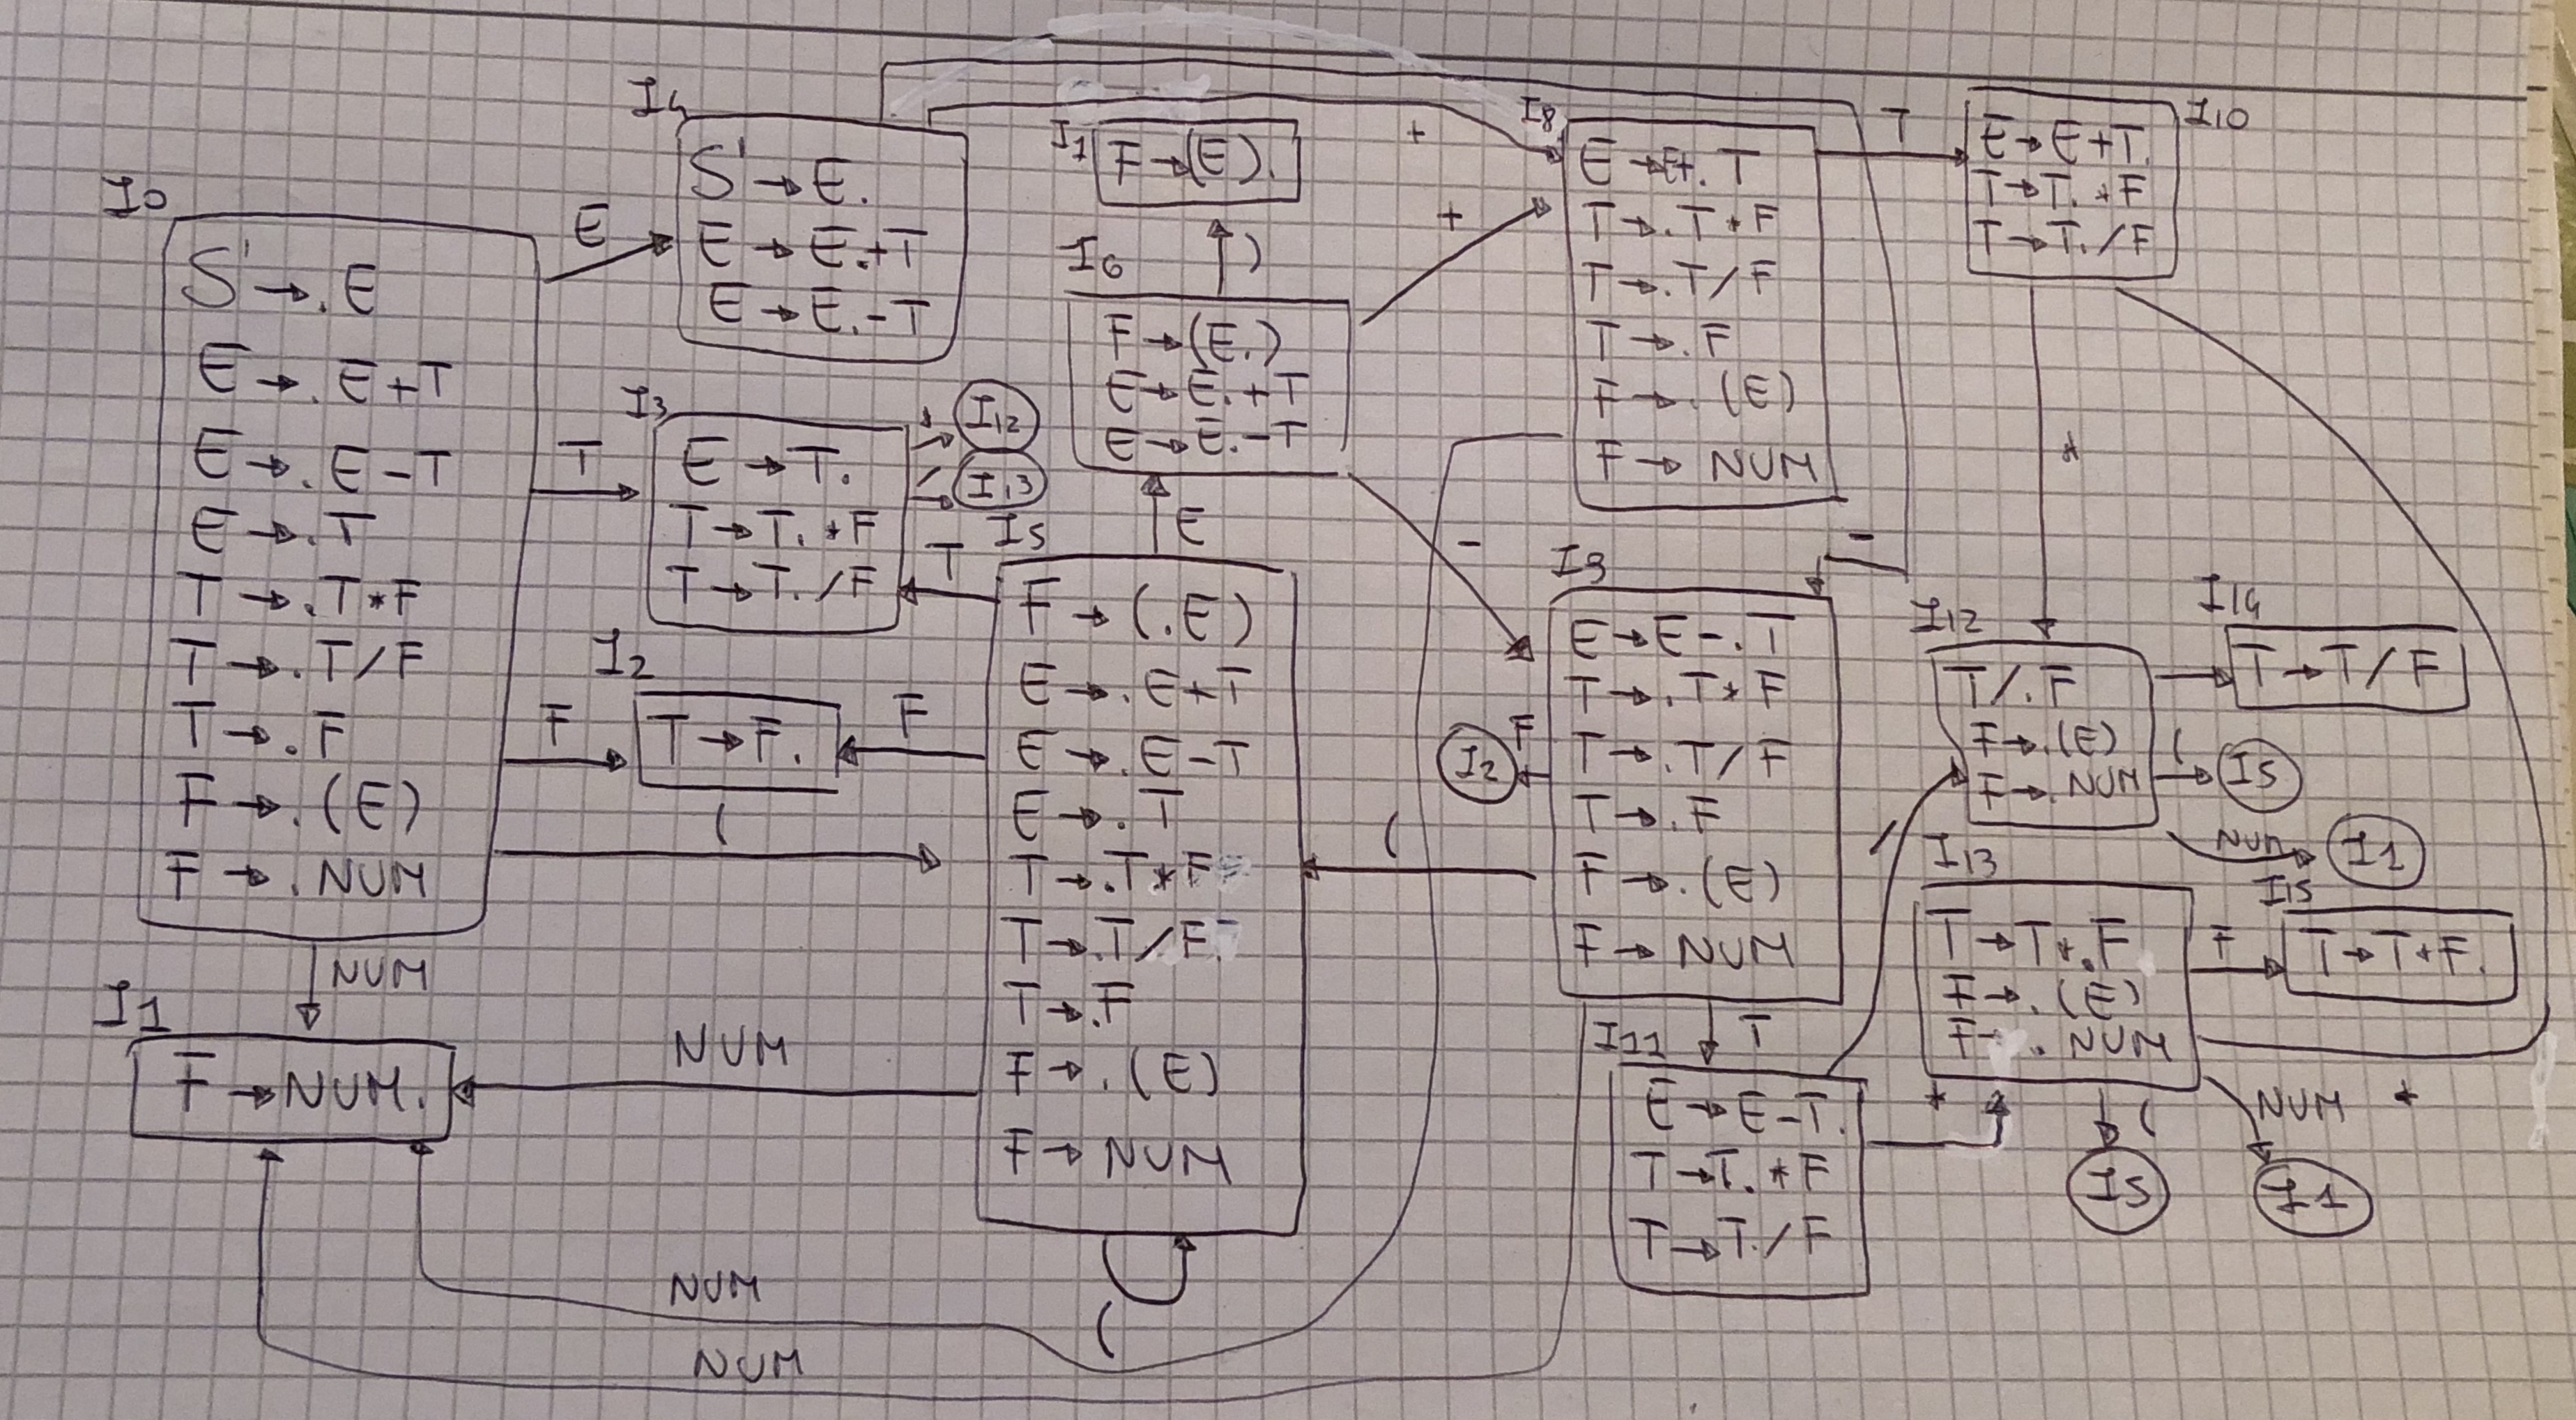 I0
S' → . E
E → . E + T
E → . E - T
E → . T
T → . T * F
T → . T / F
T → . F
F → . (E)
F → . NUM
E
T
F
(
NUM
I1
F → NUM.
I4
S' → E.
E → E. + T
E → E. - T
I3
E → T.
T → T. * F
T → T. / F
*
I12
/
I13
I2
T → F.
F
T
I7
F → (E).
)
I6
F → (E.)
E → E. + T
E → E. - T
E
I5
F → (.E)
E → . E + T
E → . E - T
E → . T
T → . T * F
T → . T / F
T → . F
F → . (E)
F → NUM
(
NUM
NUM
NUM
+
+
-
-
I8
E → E+. T
T → . T * F
T → . T / F
T → . F
F → . (E)
F → NUM
T
I10
E → E + T.
T → T. * F
T → T. / F
*
I9
E → E - . T
T → . T * F
T → . T / F
T → . F
F → . (E)
F → NUM
F
I2
(
T
I11
E → E - T.
T → T. * F
T → T. / F
/
*
I12
T / . F
F → . (E)
F → . NUM
I14
T → T / F
(
I5
NUM
I1
I13
T → T * . F
F → . (E)
F → . NUM
F
I15
T → T * F.
(
I5
NUM
I1
*